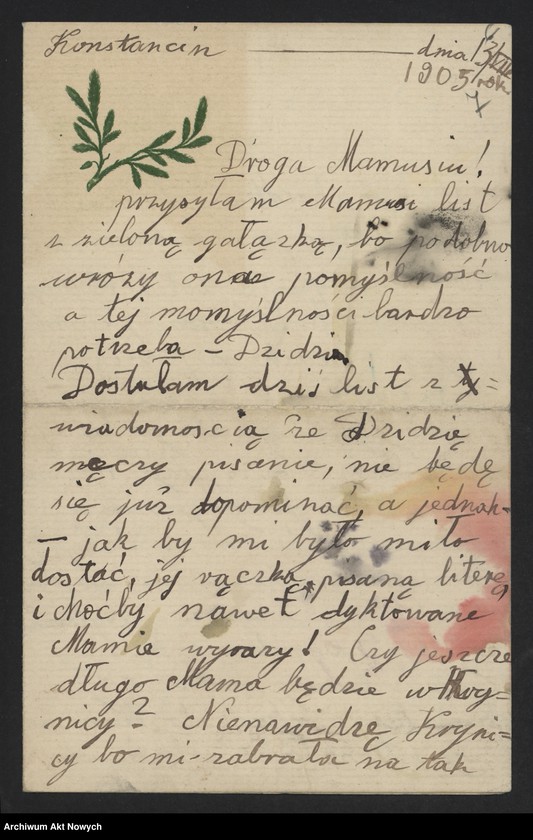 Konstancin — dnia 13/VII
1905 rok
Droga Mamusiu!
przysyłam Mamusi list
z zieloną gałązką, bo podobno
wróży ona pomyślność
a tej momyślności bardzo
potrzeba – Dzidzi.
Dostałam dziś list z
wiadomoscią że Dzidzię
męczy pisanie, nie będę
się już dopominać, a jednak-
– jak by mi było miło
dostać, jej rączką pisaną literę,
i choćby nawet dyktowane
Mamie wyrazy! Czy jeszcze
długo Mama będzie w Kry=
nicy? Nienawidzę Kryni=
cy bo mi-zabrała na tak
Archiwum Akt Nowych